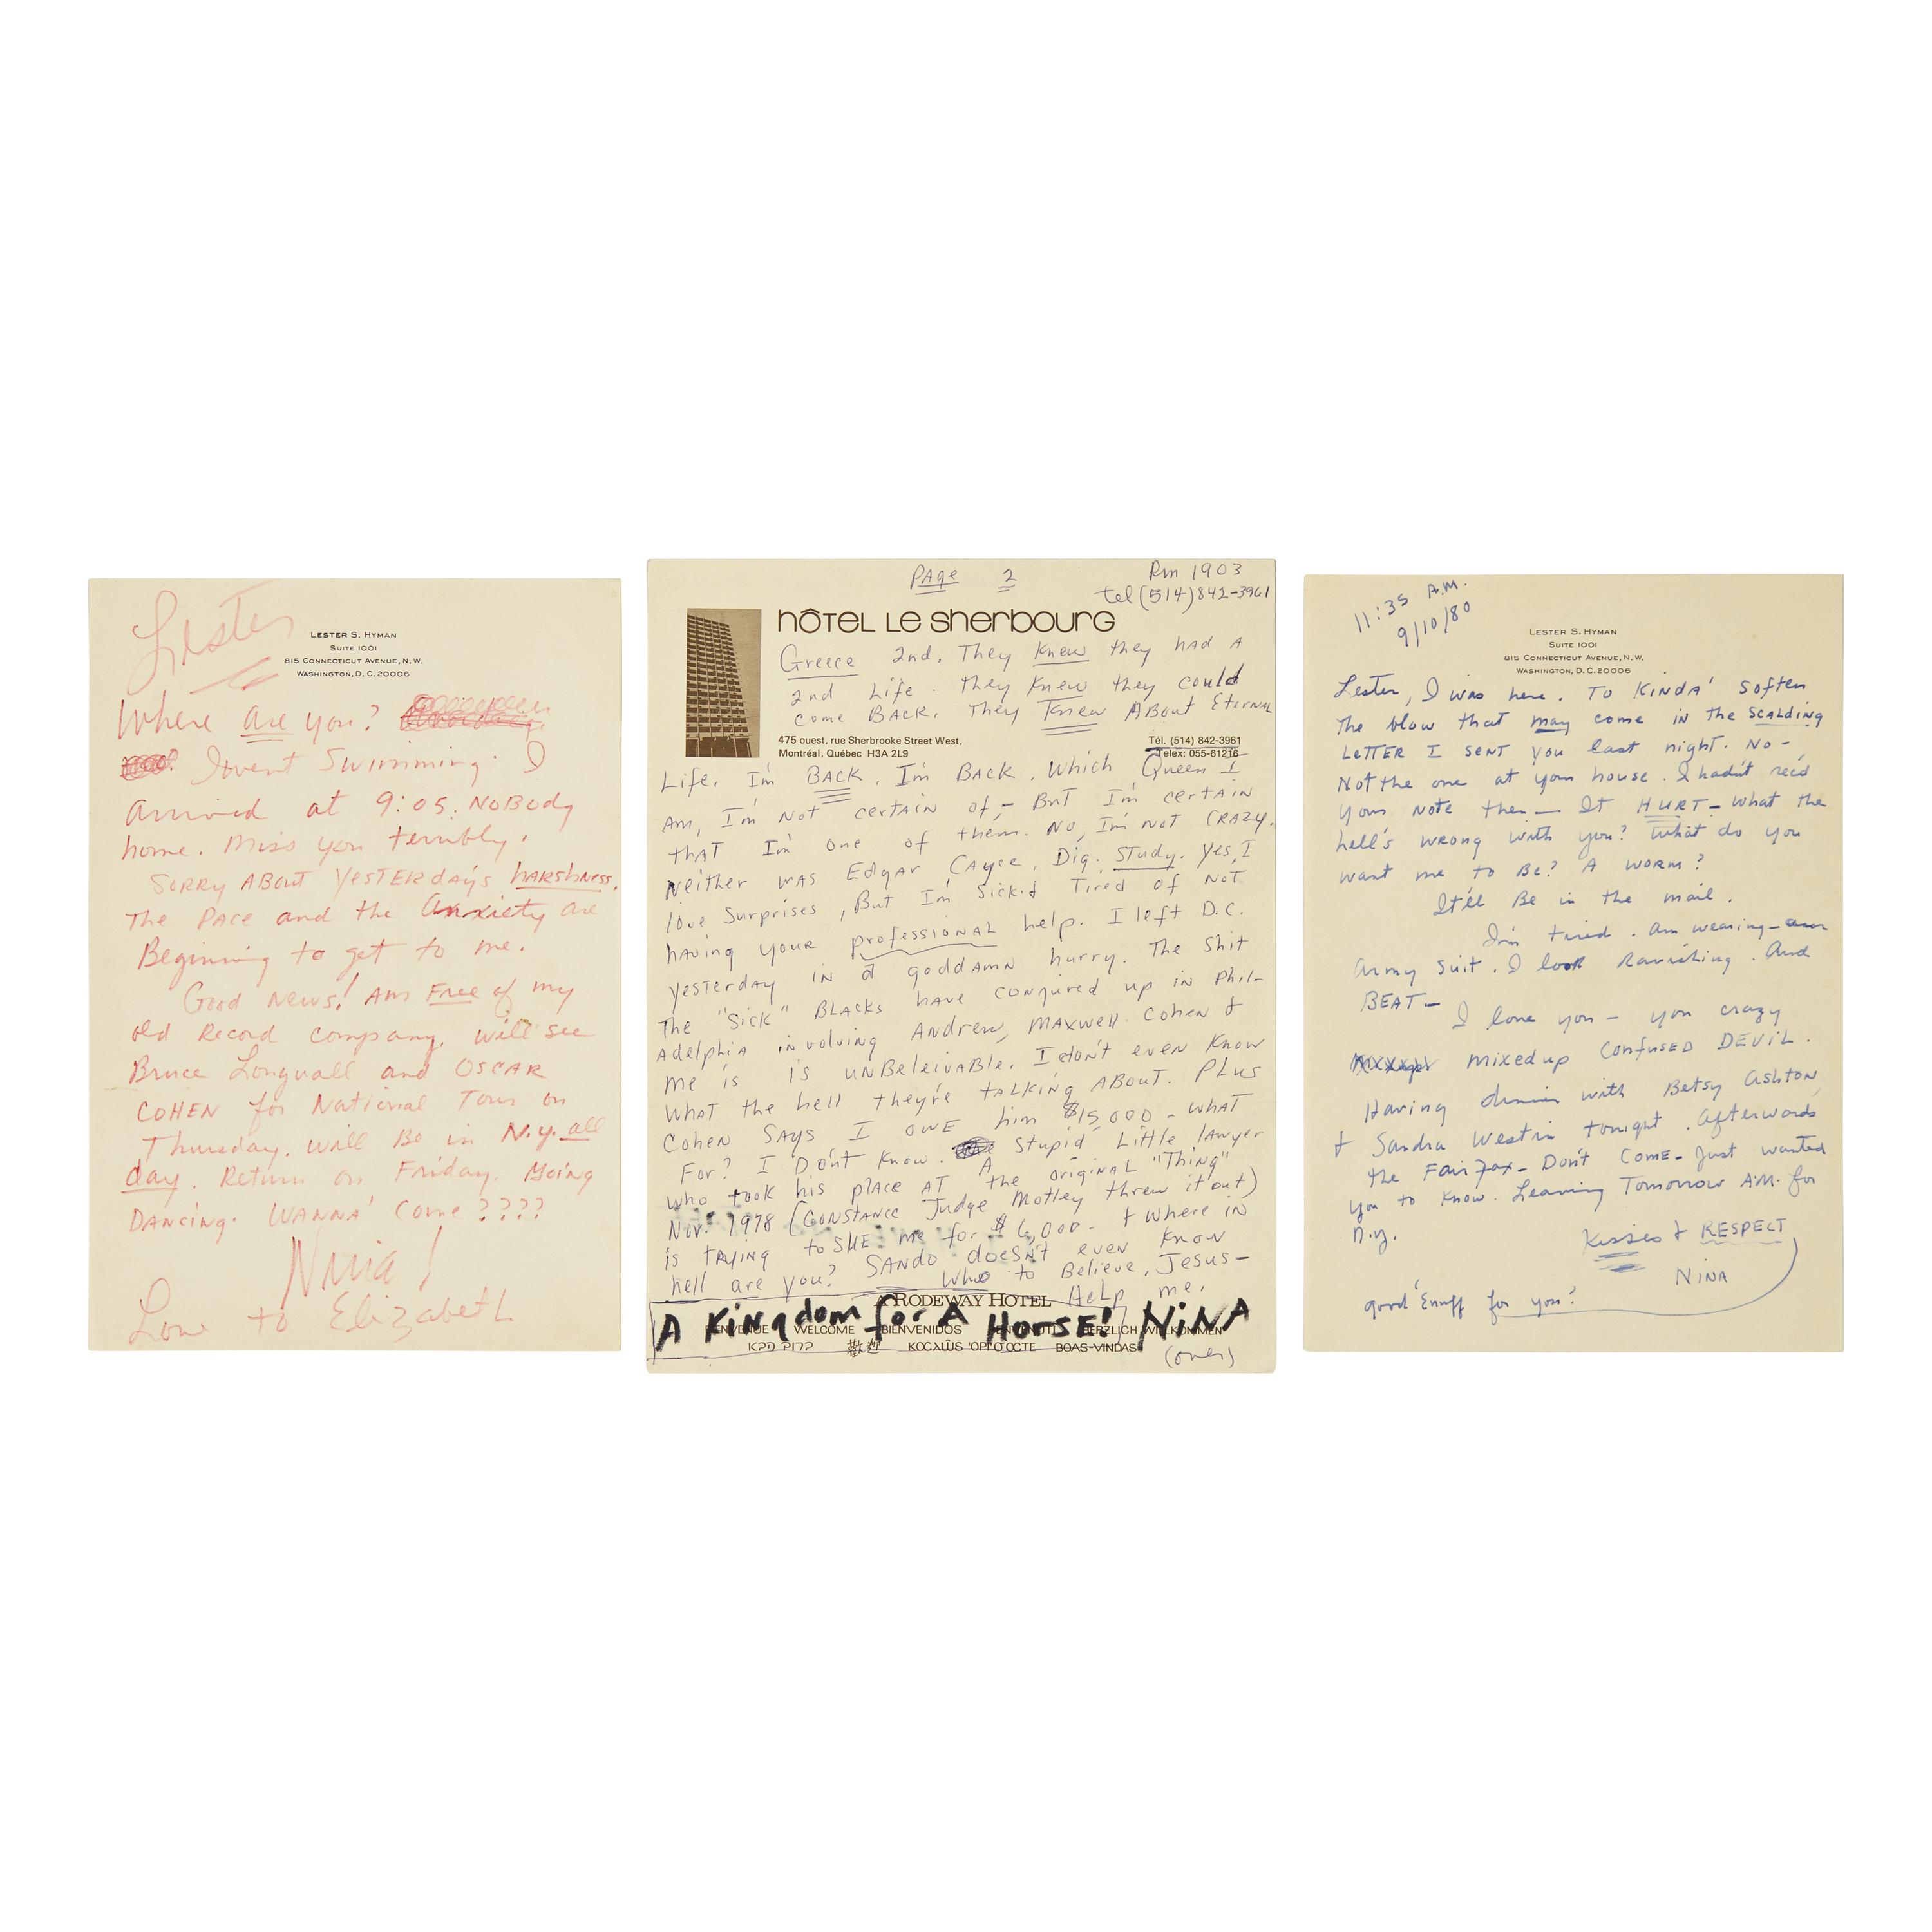 Lester
LESTER S. HYMAN
SUITE 1001
815 CONNECTICUT AVENUE, N.W.
WASHINGTON, D.C. 20006
Where are you?
I went Swimming. I
arrived at 9:05. NOBODY
home. Miss you terribly.
SORRY ABOUT YESTERDAY'S HARSHNESS.
The PACE and the Anxiety are
Beginning to get to me.
Good News! AM FREE of my
old Record company. Will see
Bruce Longuall and OSCAR
COHEN for National Tour on
Thursday. Will Be in N.Y. all
day. Return on Friday. Going
DANCING. WANNA' Come????
Nina!
Love to Elizabeth
PAGE 2
Rm 1903
tel (514) 842-3961
hôtel le sherbourg
Greece 2nd. They Knew they had A
2nd Life. They Knew they could
come BACK. They Knew ABout Eternal
475 ouest, rue Sherbrooke Street West,
Montréal, Québec H3A 2L9
Tél. (514) 842-3961
Telex: 055-61216
Life. I'm BACK. I'm BACK. Which Queen I
Am, I'm Not certain of - But I'm certain
that I'm one of them. No, I'm not CRAZY.
Neither was Edgar Cayce. Dig. Study. Yes, I
love Surprises, But I'm Sick & Tired of Not
having your professional help. I left D.C.
yesterday in a goddamn hurry. The Shit
The "Sick" BLACKs have conjured up in Phil-
Adelphia involving Andrew, MAXwell Cohen &
Me is is UNBeleivable. I don't even Know
What the hell they're talking About. PLUS
COHEN SAYS I OWE him $15,000 - WHAT
For? I DON'T KNOW. A Stupid Little lawyer
who took his place AT the original "Thing"
Nov. 1978 (CONSTANCE Judge Motley threw it out)
is trying to SUE me for $6,000 - & Where in
hell are you? SANDO doesn't even KNOW
Who to Believe. Jesus-
Help me.
A RODEWAY HOTEL
A Kingdom for A Horse! NINA
BIENVENUE WELCOME BIENVENIDOS BENVENUTI HERZLICH WILLKOMMEN
歡迎 BOAS-VINDAS
(over)
11:35 A.M.
9/10/80
LESTER S. HYMAN
SUITE 1001
815 CONNECTICUT AVENUE, N.W.
WASHINGTON, D.C. 20006
Lester, I was here. To KINDA' soften
the blow that may come in the SCALDING
LETTER I SENT you last night. No -
Not the one at your house. I hadn't rec'd
Your Note then - It HURT - What the
hell's wrong with you? What do you
want me to Be? A worm?
It'll Be in the mail.
I'm tired. Am wearing
Army Suit. I look Ravishing. And
BEAT-
I love you - you crazy
mixed up CONFUSED DEVIL.
Having dinner with Betsy Ashton,
& Sandra Westin tonight. Afterwards
the Fairfax - Don't COME - Just wanted
you to know. Leaving Tomorrow A.M. for
N.Y.
Kisses & RESPECT
NINA
good 'Enuff for you?